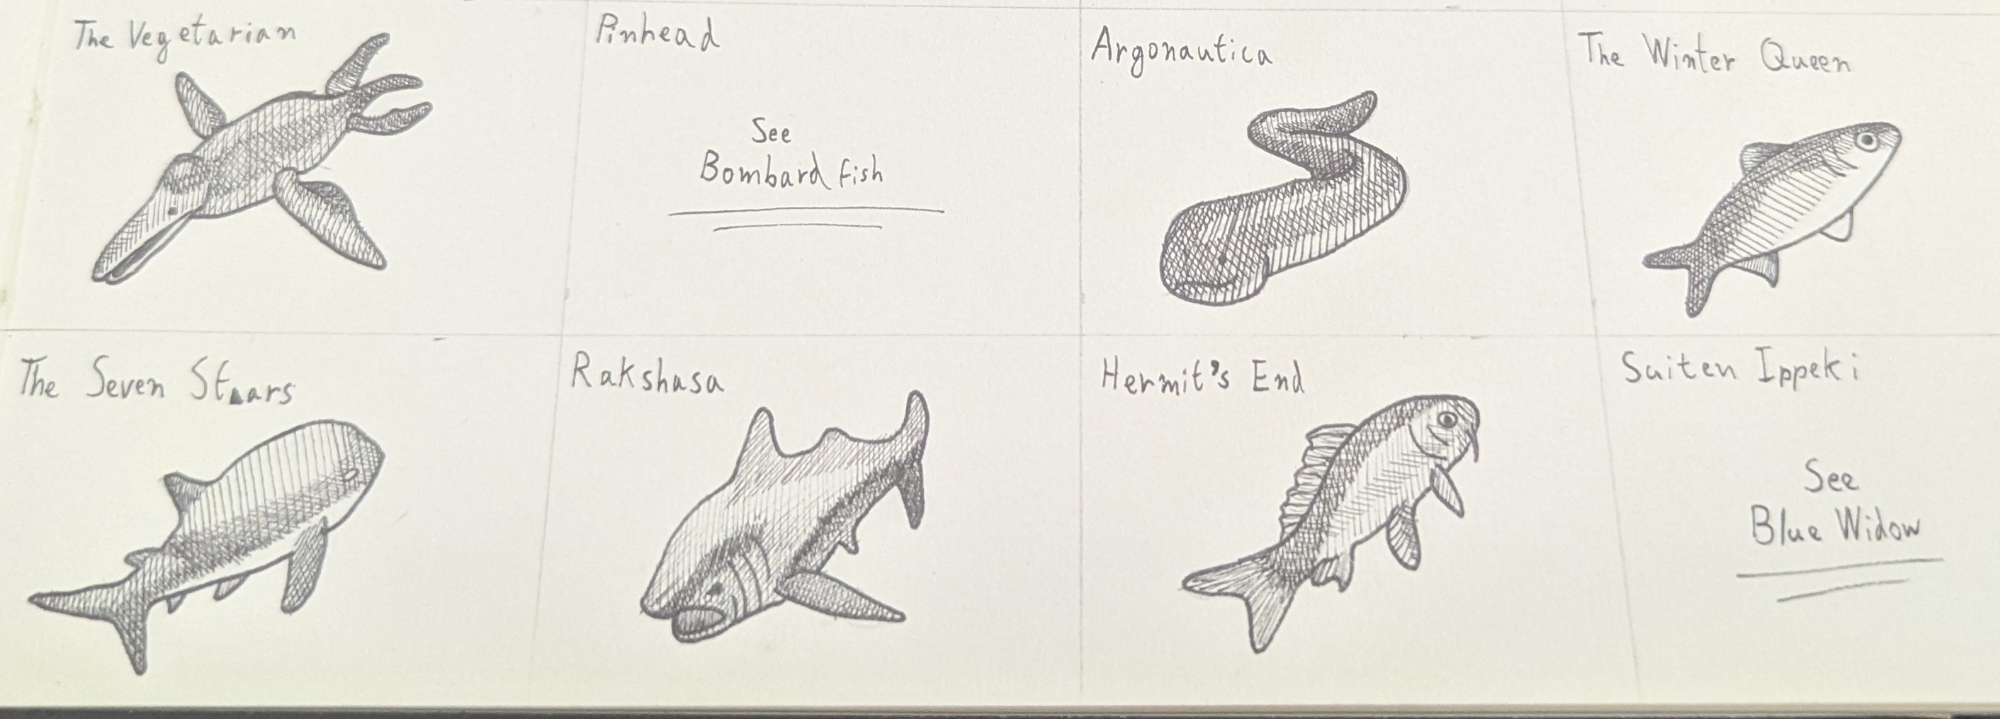 The Vegetarian
Pinhead
See
Bombard fish
Argonautica
The Winter Queen
The Seven Staars
Rakshasa
Hermit's End
Suiten Ippeki
See
Blue Widow